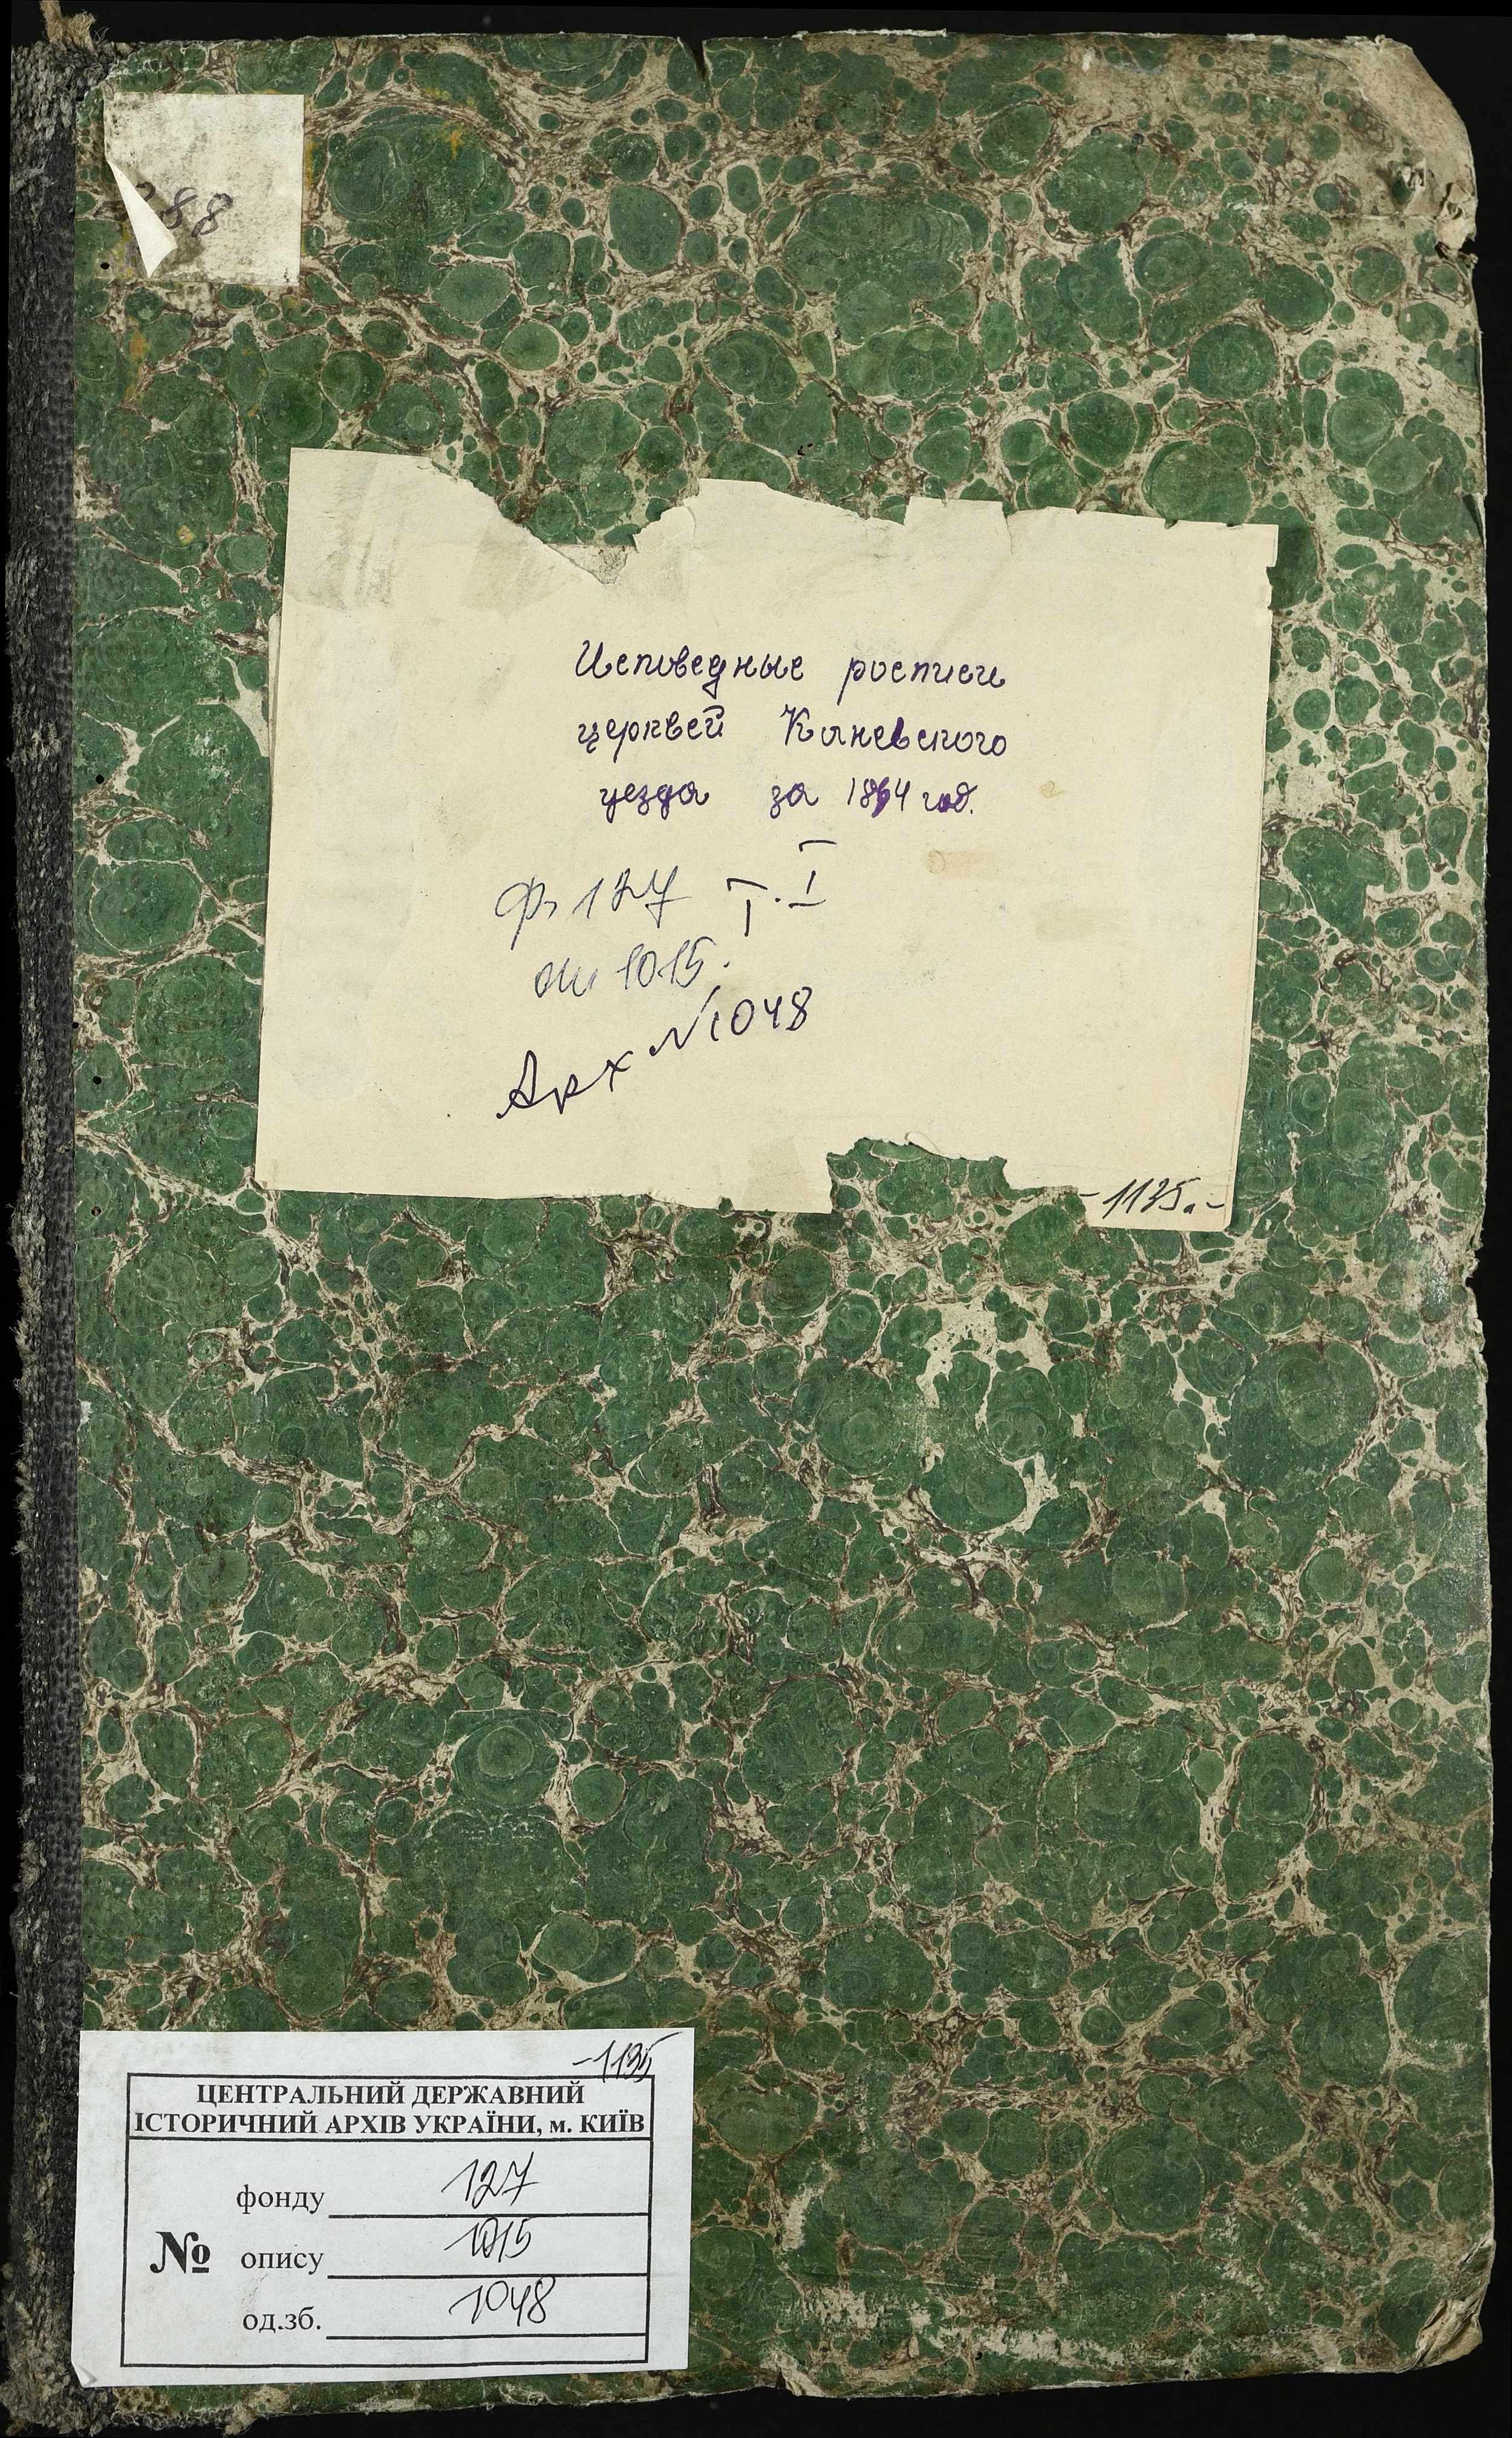 88
Исповедные росписи
церквей Каневского
уезда за 1864 год.
Ф. 127 Т. I
оп 1015.
Арх №1048
-1135.-
-1135
ЦЕНТРАЛЬНИЙ ДЕРЖАВНИЙ
ІСТОРИЧНИЙ АРХІВ УКРАЇНИ, м. КИЇВ
фонду 127
№ опису 1015
од.зб. 1048